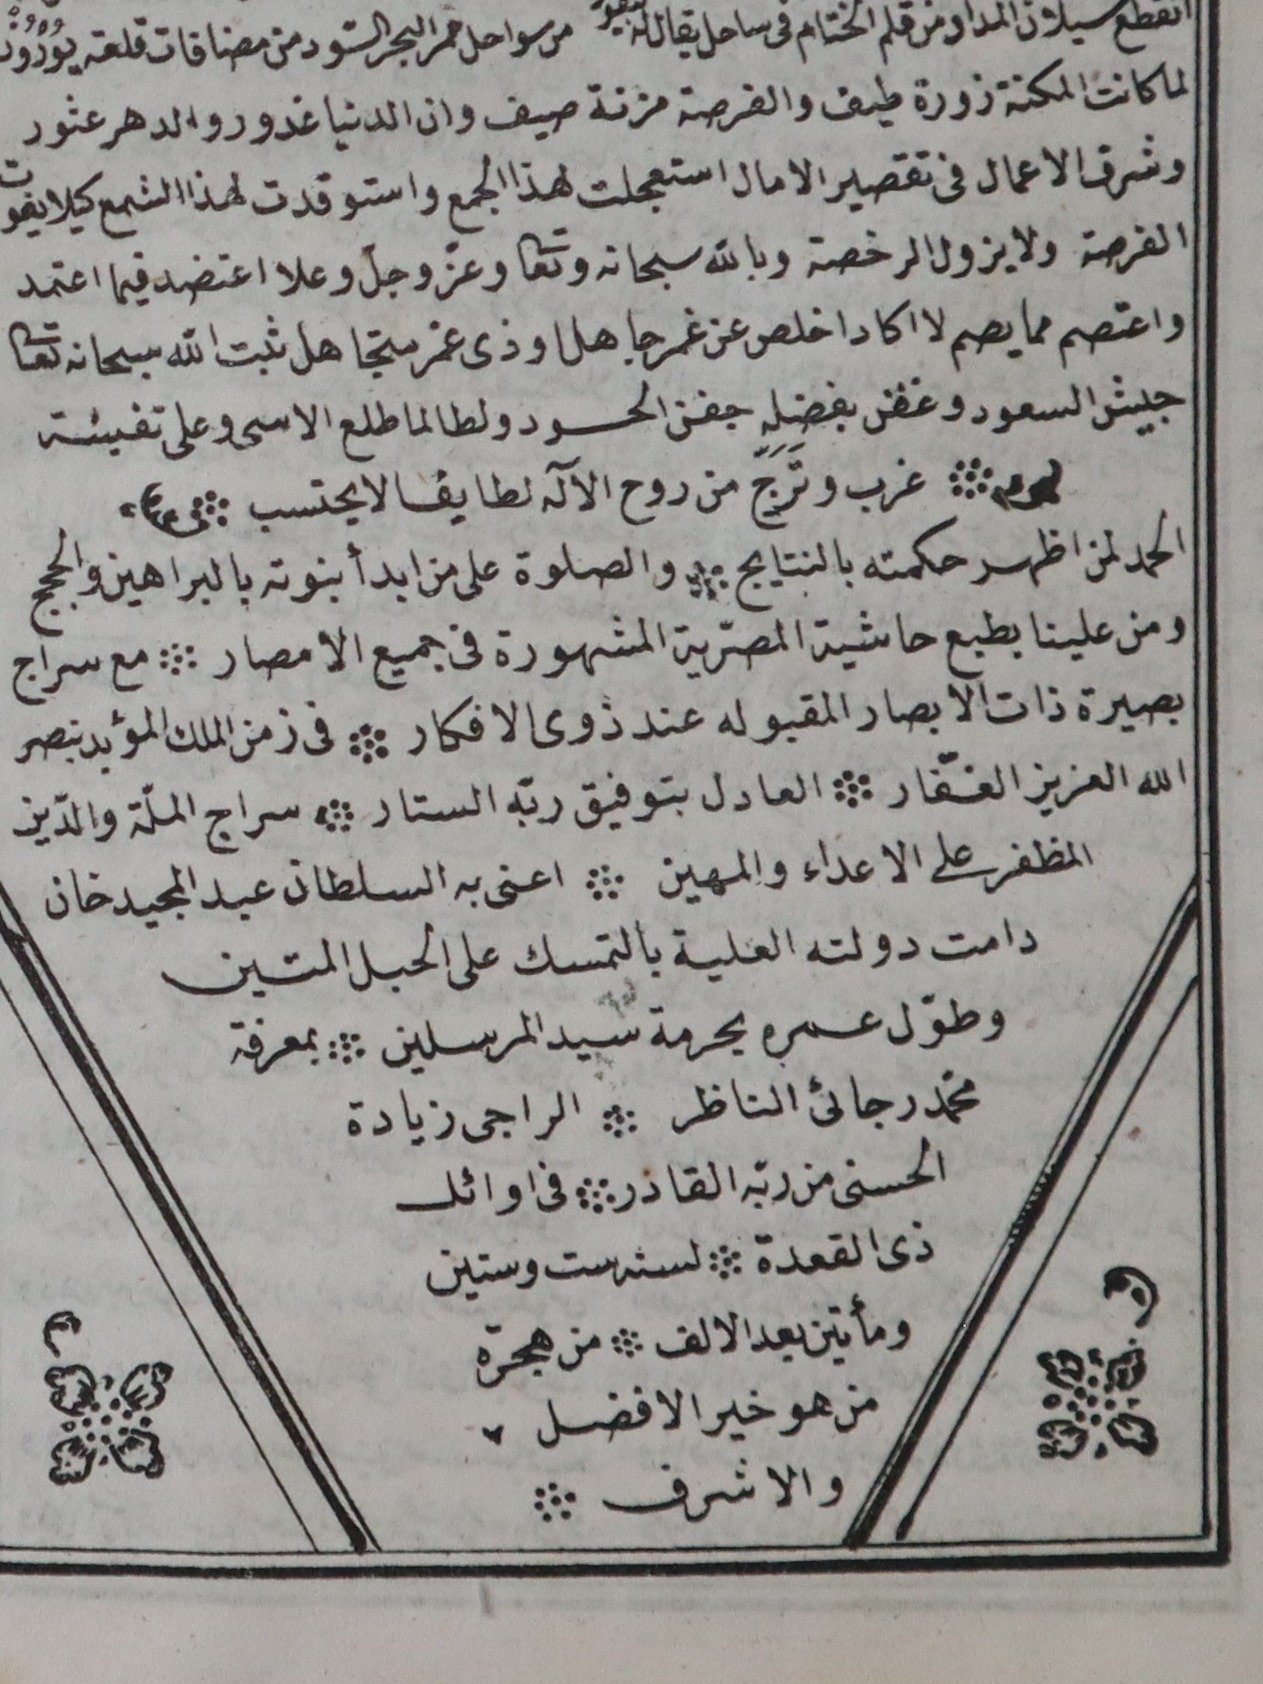 انقطع سيلان المداد من قلم الختام فى ساحل يقال له من سواحل البحر السود من مضافات قلعه
لما كانت المكنة زورة طيف والفرصة مزنة صيف وان الدنيا غدور والدهر عثور
وشرف الاعمال فى تقصير الامال استعجلت لهذا الجمع واستوقدت لهذا الشمع كيلا يفوت
الفرصة ولا يزول الرخصة وبالله سبحانه وتعا وعز وجل وعلا اعتضد فيما اعتمد
واعتصم مما يصم لا اكاد اخلص عن غمر جاهل او ذى غمر متجاهل ثبت الله سبحانه تعا
جيش السعود وغض بفضله جفن الحسود ولطالما طلع الاسى وعلى تفيئته
غرب وترج من روح الآله لطايفا لا يحتسب
الحمد لمن اظهر حكمته بالنتايج ۞ والصلوة على من ابدأ بنوته بالبراهين والحجج
ومن علينا بطبع حاشية المصرية المشهورة فى جميع الامصار ۞ مع سراج
بصيرة ذات الابصار المقبوله عند ذوى الافكار ۞ فى زمن الملك المؤيد بنصر
الله العزيز الغفّار ۞ العادل بتوفيق ربّه الستار ۞ سراج الملّة والدّين
المظفر على الاعداء والمهين ۞ اعنى به السلطان عبد المجيد خان
دامت دولته العلية بالتمسك على الحبل المتين
وطوّل عمره بحرمة سيد المرسلين ۞ بمعرفة
محمد رجائى الناظر ۞ الراجى زيادة
الحسنى من ربّه القادر ۞ فى اوائل
ذى القعدة ۞ لسنه ست وستين
ومأتين بعد الالف ۞ من هجرة
من هو خير الافضل
والاشرف ۞